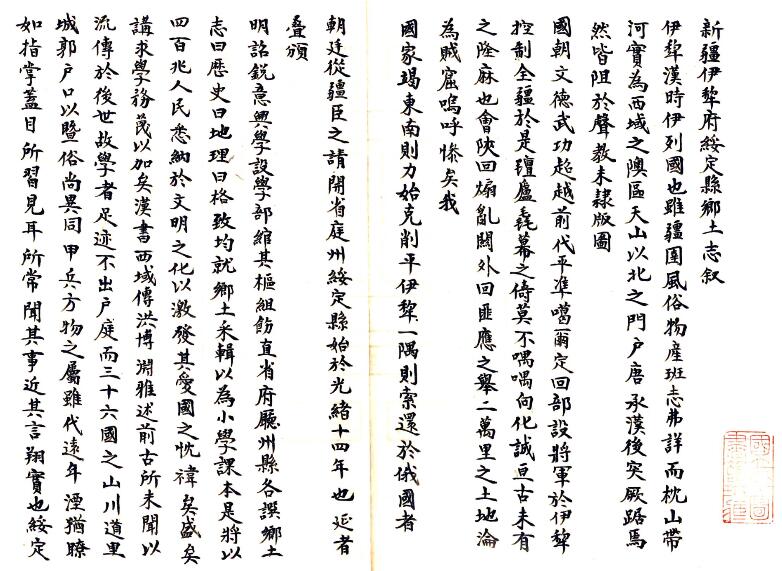 新疆伊犂府綏定縣鄉土志叙
伊犂漢時伊列國也雖疆圉風俗物産班志弗詳而枕山帶
河實為西域之隩區天山以北之門户唐承漢後突厥踞焉
然皆阻於聲教未隸版圖
國朝文德武功超越前代平準噶爾定回部設將軍於伊犂
控制全疆於是氊廬毳幕之倚莫不喁喁向化誠亘古未有
之隆庥也會陝回煽亂關外回匪應之舉二萬里之土地淪
為賊窟嗚呼慘矣我
國家竭東南則力始克削平伊犂一隅則索還於俄國者
朝廷從疆臣之請開省庭州綏定縣始於光緒十四年也延者
叠頒
明詔鋭意興學設學部綰其樞組飭直省府廳州縣各譔鄉土
志曰歷史曰地理曰格致均就鄉土采輯以為小學課本是將以
四百兆人民悉納於文明之化以激發其愛國之忱禕矣盛矣
講求學務蔑以加矣漢書西域傳洪博淵雅述前古所未聞以
流傳於後世故學者足迹不出户庭而三十六國之山川道里
城郭户口以暨俗尚異同甲兵方物之屬雖代遠年湮猶瞭
如指掌蓋目所習見耳所常聞其事近其言翔實也綏定